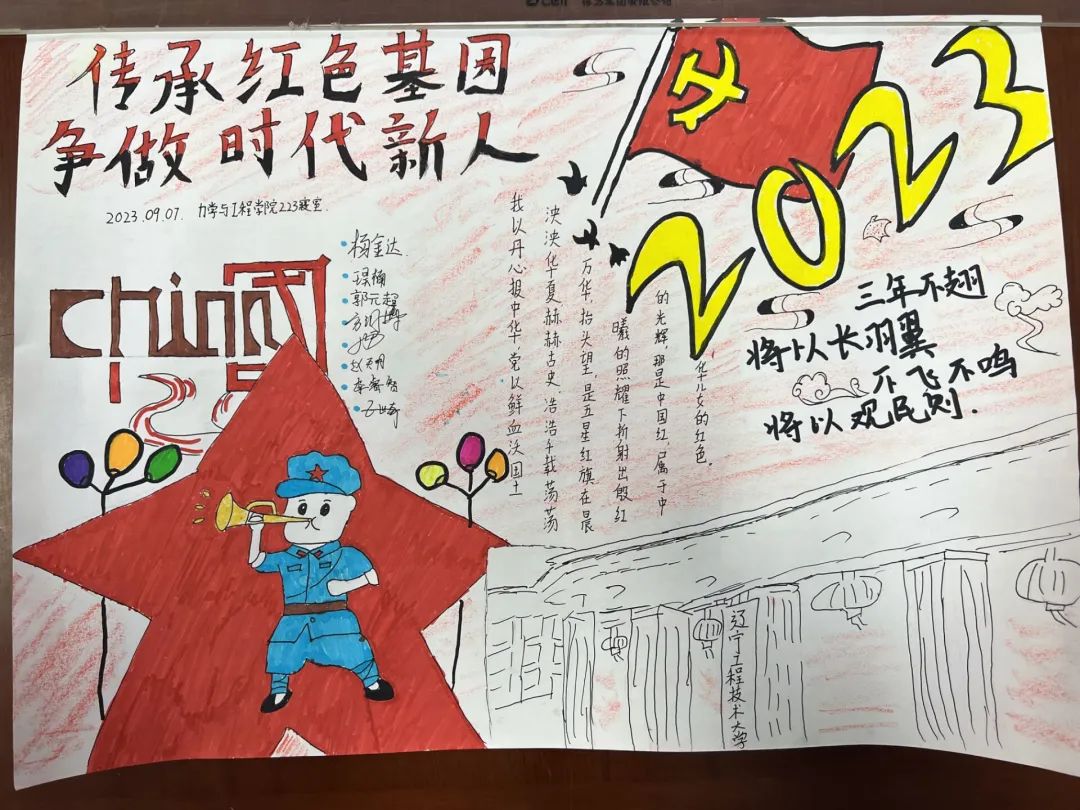 传承红色基因
争做时代新人
2023.09.07. 力学与工程学院223寝室.
China
杨金达.
郭元超
我以丹心报中华,党以鲜血沃国土
泱泱华夏赫赫古史,浩浩千载荡荡
万华,抬头望,是五星红旗在晨
曦的照耀下折射出殷红
的光辉,那是中国红,属于中
华儿女的红色。
2023
三年不翅
将以长羽翼
不飞不鸣
将以观民则.
辽宁工程技术大学